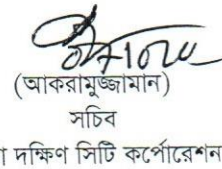 (আকরামুজ্জামান)
সচিব
া দক্ষিণ সিটি কর্পোরেশন